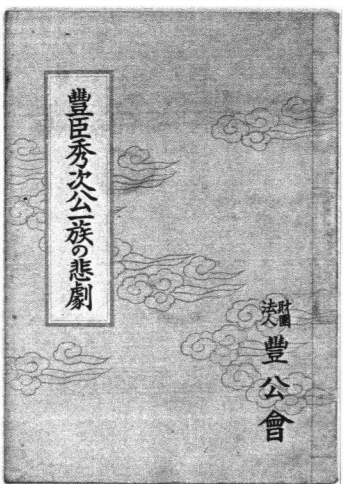 豐臣秀次公一族の悲劇
財團法人 豐公會